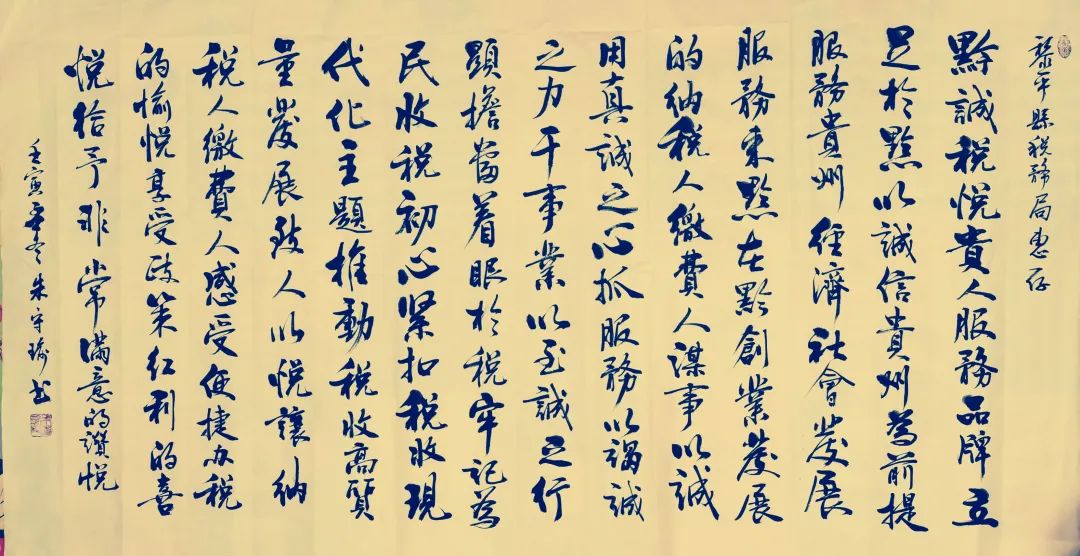 黎平縣税務局惠存
黔誠税悦貴人服務品牌立
足於黔以誠信貴州為前提
服務貴州經濟社會發展
服務東黔在黔創業發展
的纳税人繳費人謀事以誠
用真誠之心抓服務以竭誠
之力干事業以至誠之行
顯擔當着眼於税牢記為
民收税初心緊扣税收現
代化主題推動税收高質
量發展致人以悦讓納
税人繳費人感受便捷办税
的愉悦享受政策红利的喜
悦给予非常满意的讚悦
壬寅季冬朱守瑜书